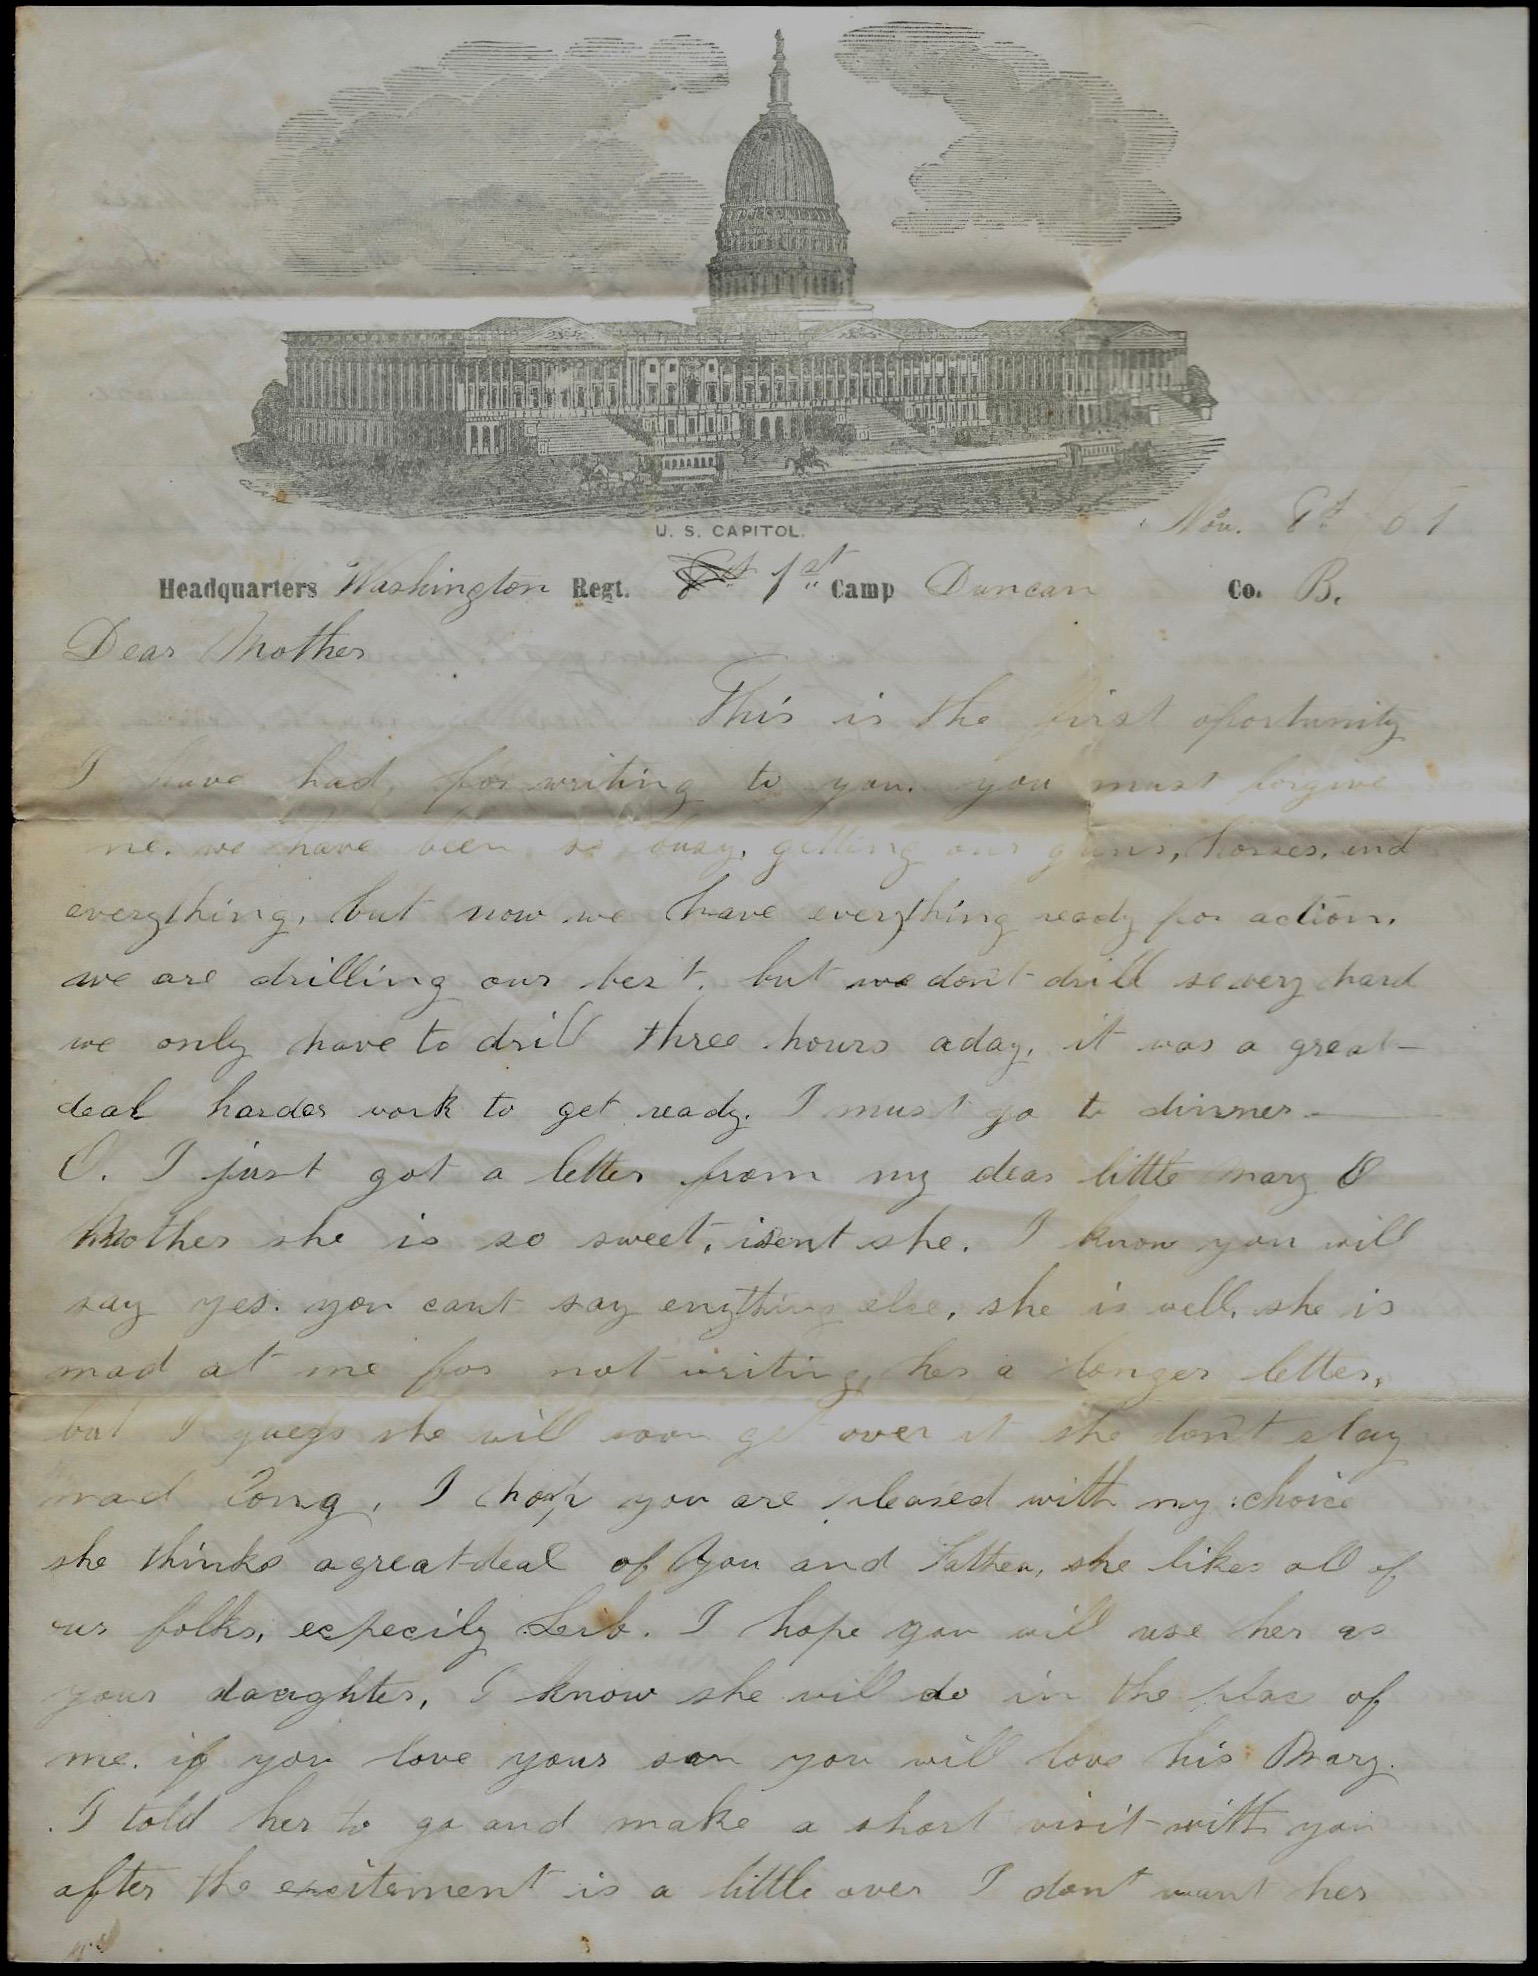 U. S. CAPITOL.
Nov. 8th 61
Headquarters Washington Regt. 1st Camp Duncan Co. B.
Dear Mother
This is the first oportunity
I have had, for writing to you. you must forgive
me. we have been so busy, getting our guns, horses, and
everything, but now we have everything ready for action.
we are drilling our best. but we dont drill so very hard
we only have to drill three hours aday, it was a great
deal harder work to get ready. I must go to dinner —
O. I just got a letter from my dear little Mary O
Mother she is so sweet, isent she. I know you will
say yes. you cant say enything else, she is well, she is
mad at me for not writing her a longer letter,
but I guess she will soon get over it she don't stay
mad long, I hope you are pleased with my choice
she thinks agreatdeal of you and Father, she likes all of
our folks, especily Leib. I hope you will use her as
your daughter, I know she will do in the plac of
me. if you love your son you will love his Mary.
I told her to go and make a short visit with you
after the excitement is a little over I dont want her